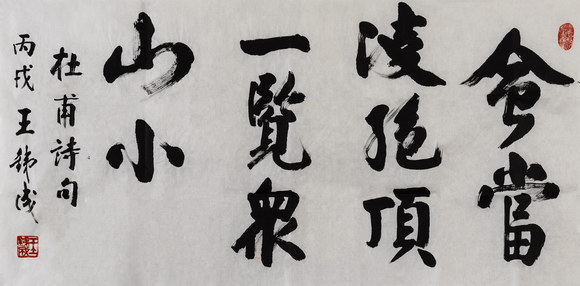 會當
凌絕頂
一覽衆
山小
杜甫詩句
丙戌王